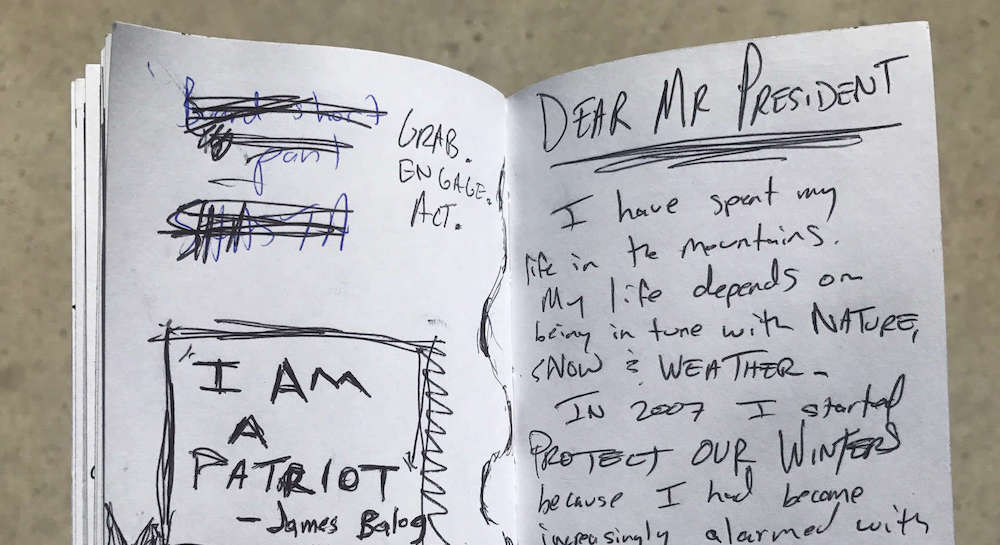 Board short
pant
SHASTA
GRAB.
ENGAGE.
ACT.
I AM
A
PATRIOT
- James Balog
DEAR MR PRESIDENT
I have spent my
life in the mountains.
My life depends on
being in tune with NATURE,
SNOW & WEATHER -
IN 2007 I started
PROTECT OUR WINTERS
because I had become
increasingly alarmed with